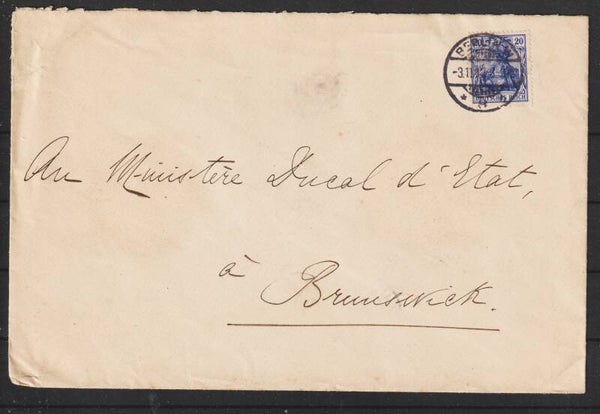 BERLIN W
20
-3.11.
Au Ministère Ducal d'Etat,
à
Brunswick.